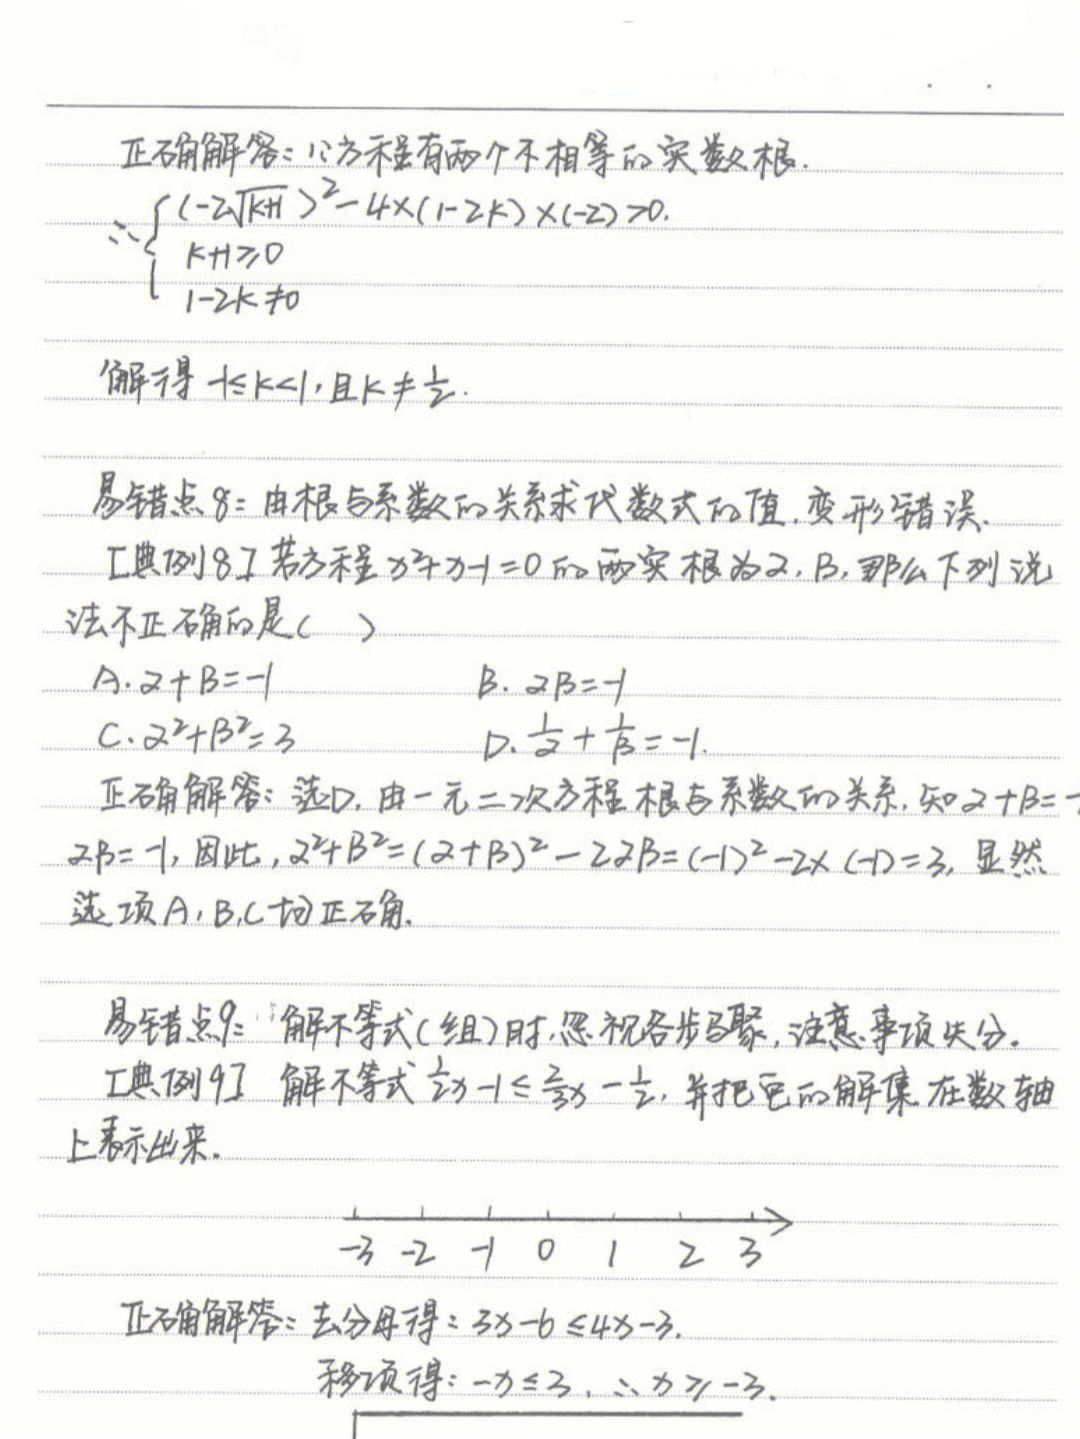 正确解答:∵方程有两个不相等的实数根.
∴{(-2√k+1)²-4×(1-2k)×(-2)>0.
k+1≥0
1-2k≠0
解得 -1≤k<1,且k≠1/2.
易错点8:由根与系数的关系求代数式的值.变形错误.
[典例8]若方程x²+x-1=0的两实根为α,β,那么下列说
法不正确的是( )
A.α+β=-1 B.αβ=-1
C.α²+β²=3 D.1/α+1/β=-1.
正确解答:选D.由一元二次方程根与系数的关系.知α+β=-
αβ=-1,因此,α²+β²=(α+β)²-2αβ=(-1)²-2×(-1)=3,显然
选项A,B,C均正确.
易错点9: 解不等式(组)时,忽视各步骤,注意事项失分.
[典例9] 解不等式 1/2x-1≤2/3x-1/2,并把它的解集在数轴
上表示出来.
-3 -2 -1 0 1 2 3
正确解答:去分母得:3x-6≤4x-3.
移项得:-x≤3,∴x≥-3.